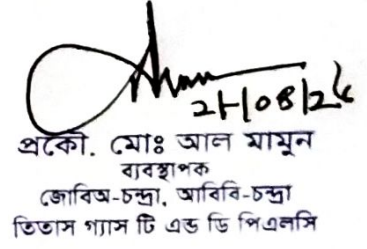 21/08/24
প্রকৌ. মোঃ আল মামুন
ব্যবস্থাপক
জোবিঅ-চন্দ্রা, আবিবি-চন্দ্রা
তিতাস গ্যাস টি এন্ড ডি পিএলসি